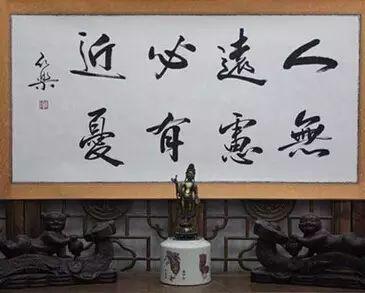 人無
遠慮
必有
近憂
樂